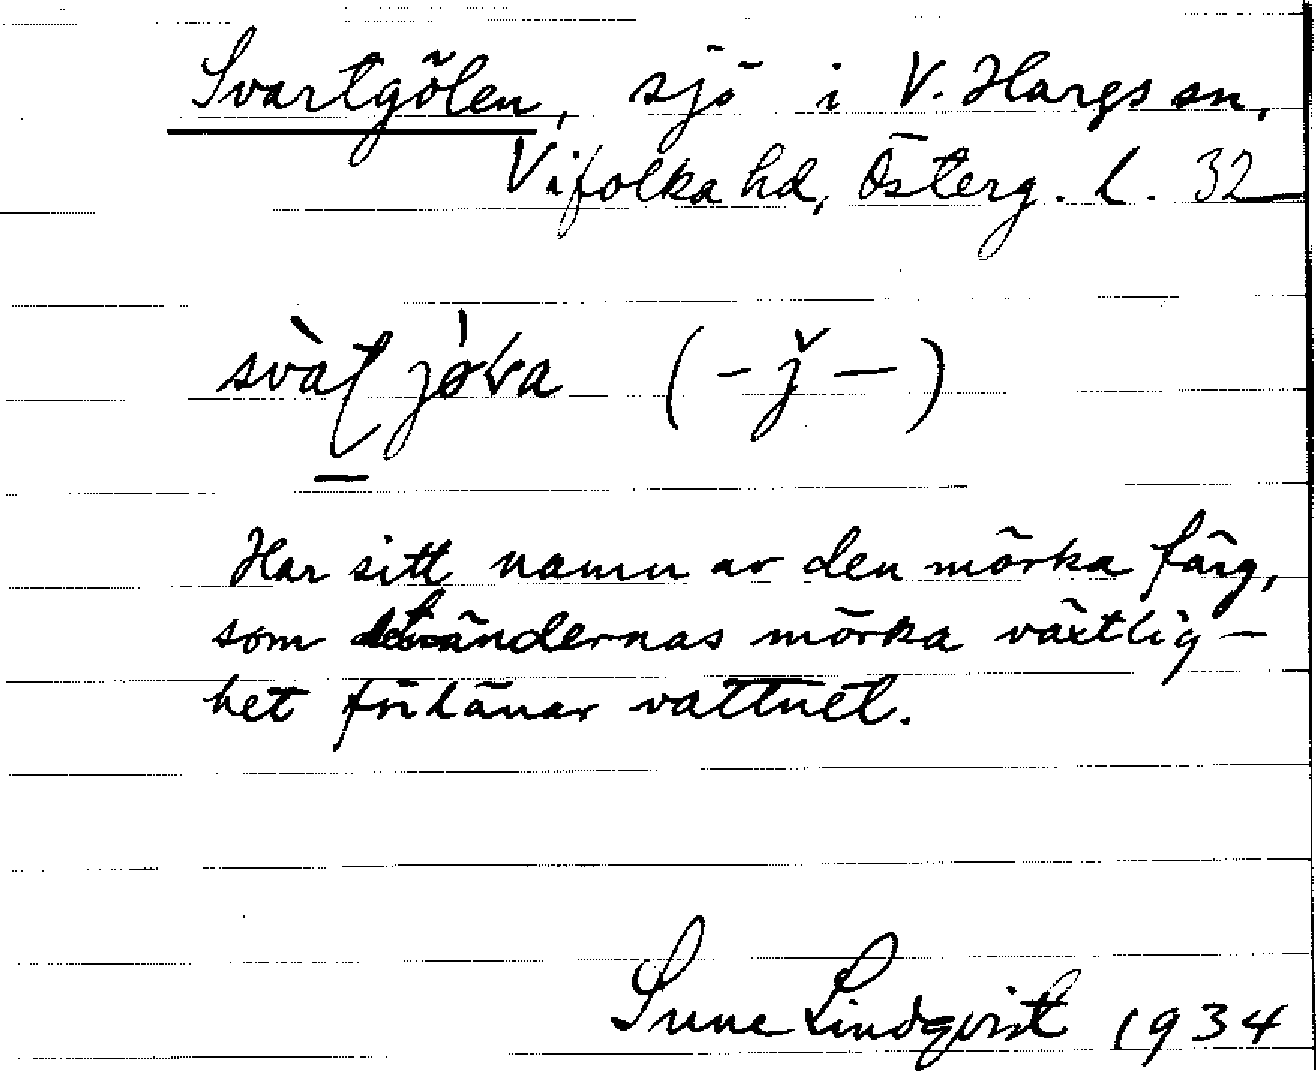 Svartgölen, sjö i V. Hargs sn,
Vifolka hd, Österg. l. 32
Har sitt namn av den mörka färg,
som strändernas mörka växtlig-
het förlänar vattnet.
Sune Lindqvist 1934